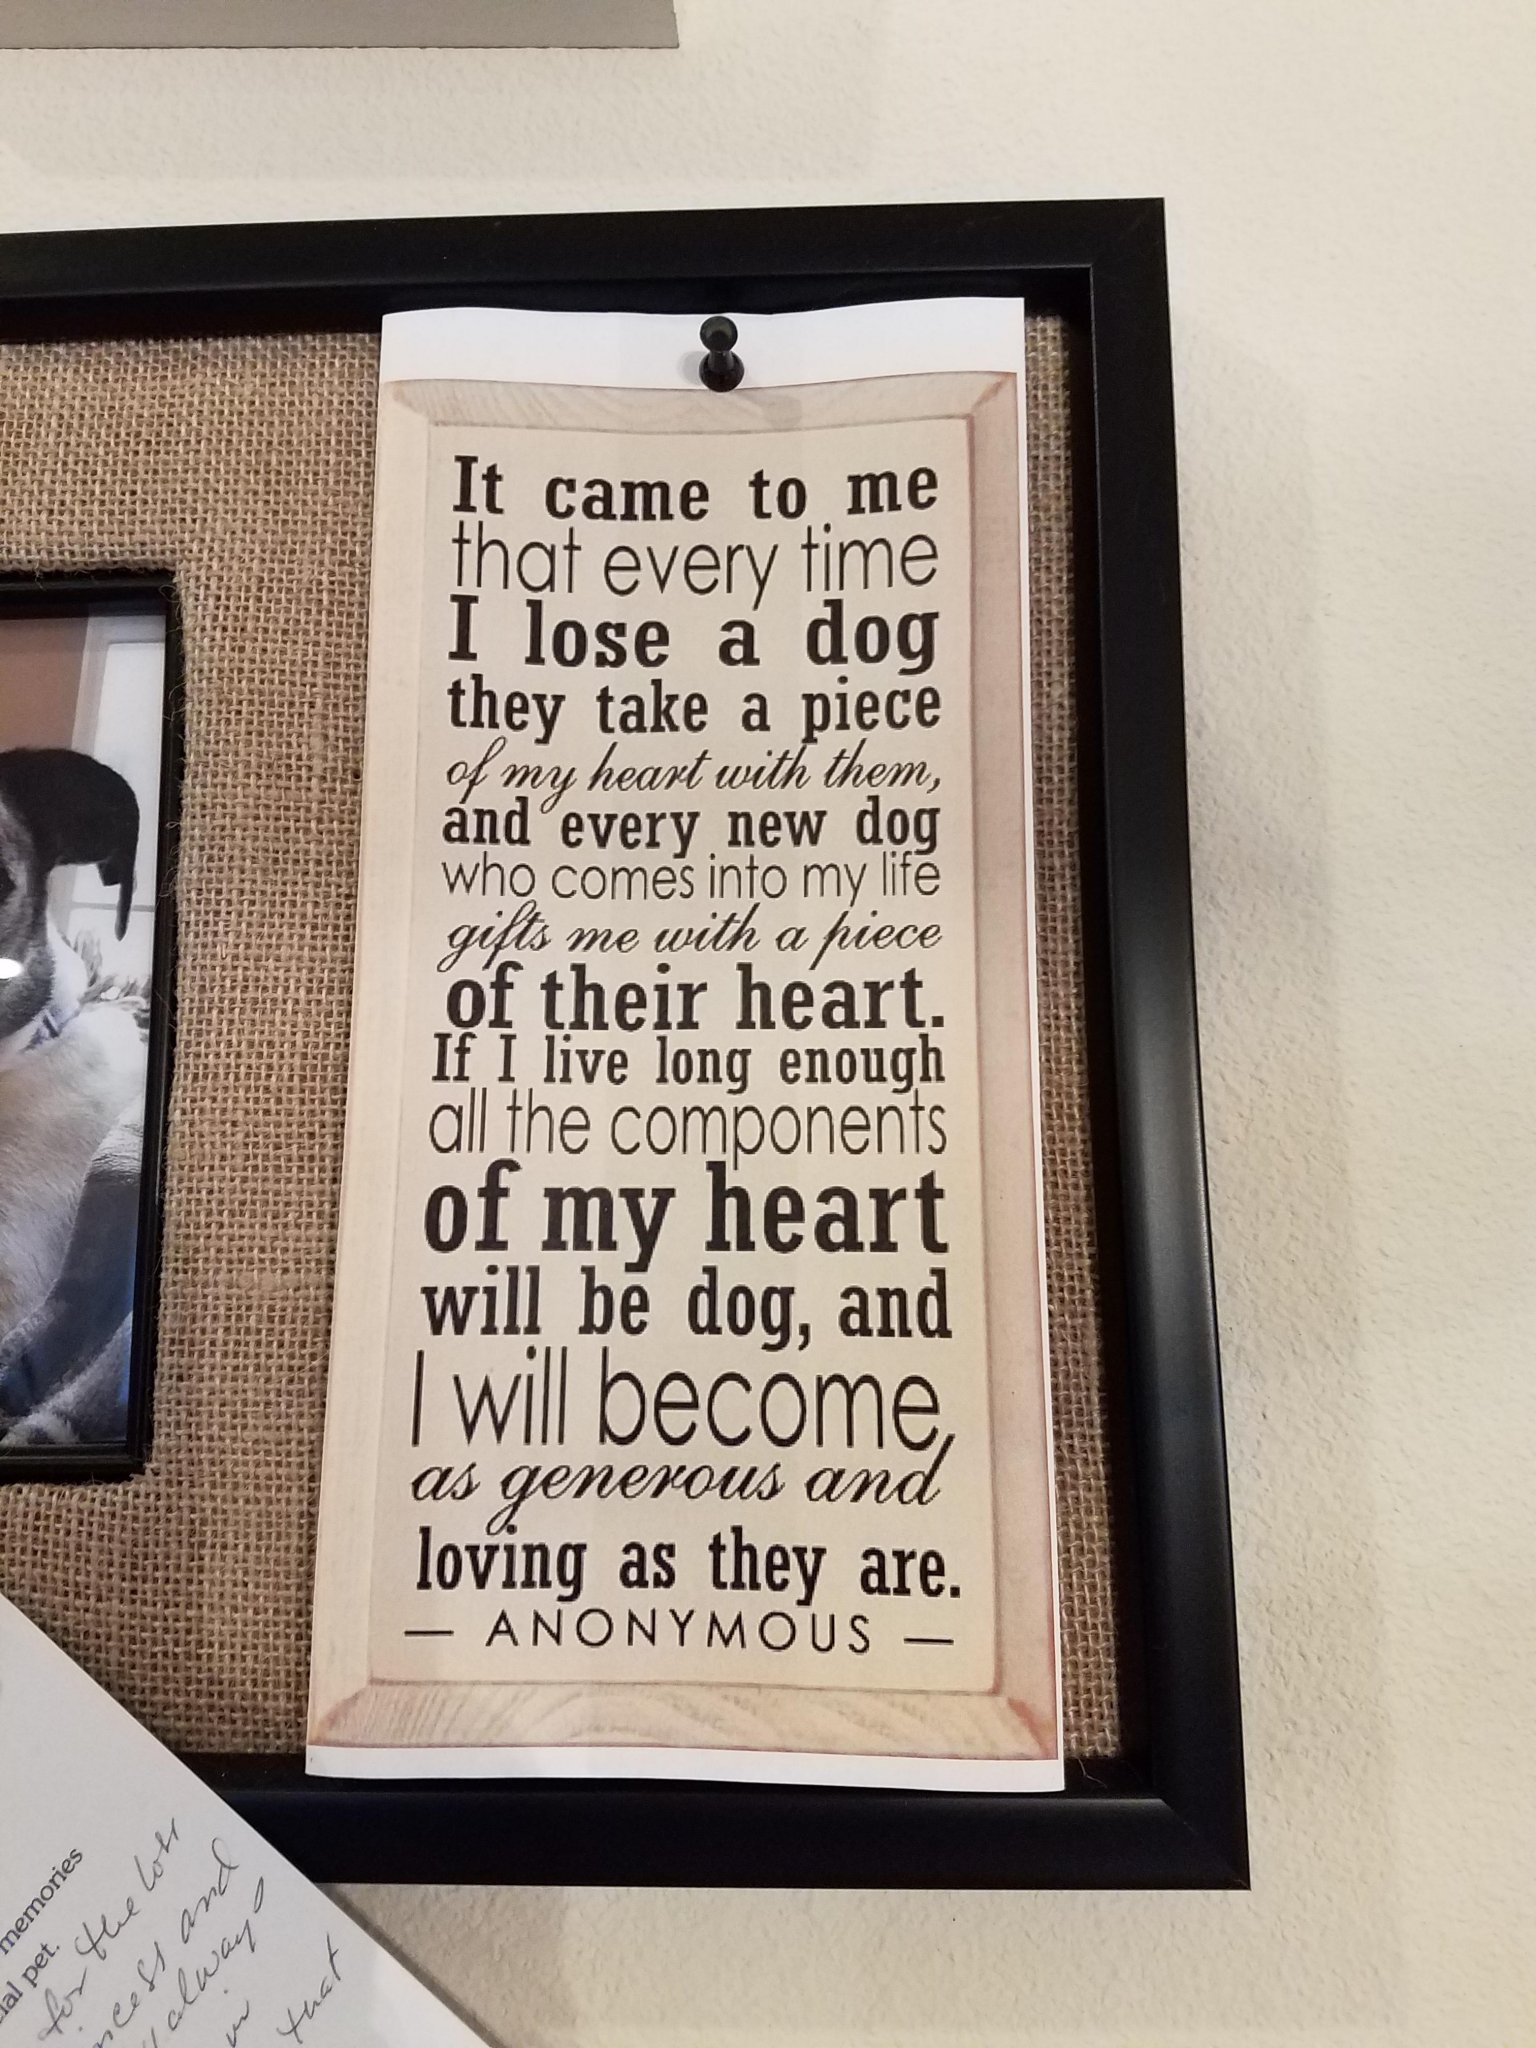 It came to me
that every time
I lose a dog
they take a piece
of my heart with them,
and every new dog
who comes into my life
gifts me with a piece
of their heart.
If I live long enough
all the components
of my heart
will be dog, and
I will become,
as generous and
loving as they are.
— ANONYMOUS —
memories
pet.
for the loss
and
always
that